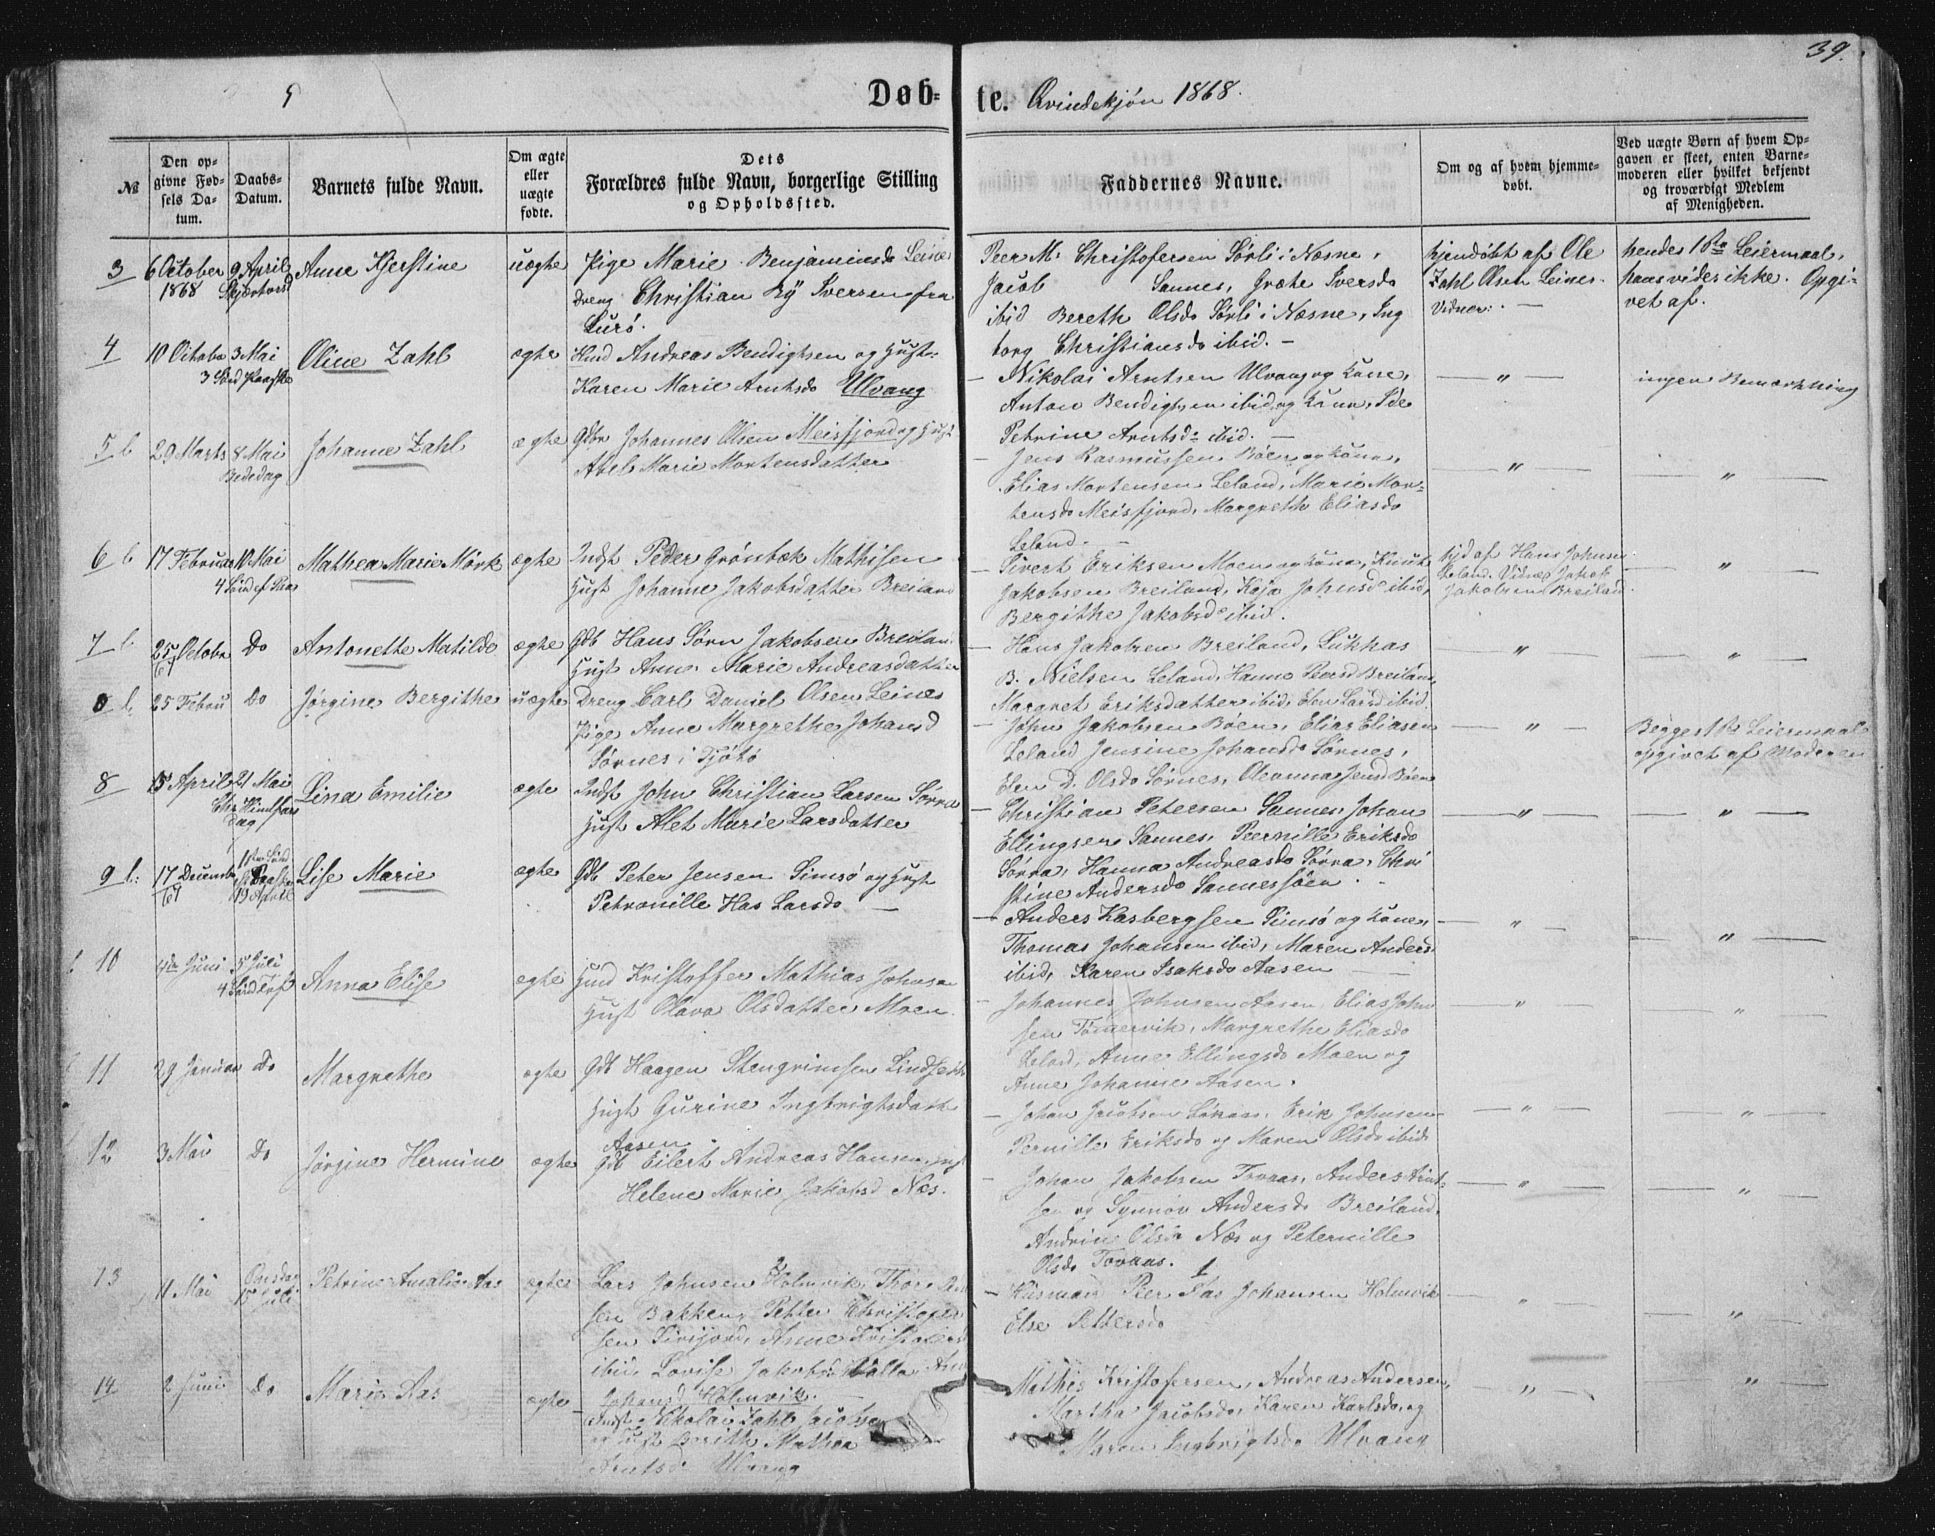 39.
5
Døb- te. Qvindekjøn 1868.
№
Den opgivne Fødsels Datum.
Daabs-Datum.
Barnets fulde Navn.
Om ægte eller uægte fødte.
Dets Forældres fulde Navn, borgerlige Stilling og Opholdssted.
Faddernes Navne.
Om og af hvem hjemmedøbt.
Ved uægte Børn af hvem Opgaven er skeet, enten Barnemoderen eller hvilket bekjendt og troværdigt Medlem af Menigheden.
3 6 October 1868 9 April Skjærtorsd Anne Kjerstine uægte Pige Marie Benjaminsd Leines
dreng Christian Ry Iversen fra
Lurø.
Peer M. Christofersen Sørli i Næsne,
Jacob Sannes, Grethe Iversds
ibid Bereth Olsds Sørli i Næsne, Ing
borg Christiansds ibid. —
hjemdøbt af Ole
Zahl Olsen Leines.
Vidner: —
hendes 1ste Leiermaal,
hans vides ikke. Opgi-
vet af.
4 10 Octobr 3 Mai 3 Sønd Paaske Oline Zahl ægte Huusd Andreas Bendigtsen og Hust:
Karen Marie Arntsds Ulvang
— Nikolai Arntsen Ulvang og Kone,
Anton Bendigtsen ibid og Kone,
Petrine Arntsd: ibid. —
— " —
ingen Bemærkning
5 b 29 Marts 8 Mai Bededag Johanne Zahl ægte Gdbr Johannes Olsen Meisfjord og Hust
Abel Marie Mortensdatter
— Jens Rasmussen Bøen og Kone,
Elias Mortensen Leland, Marie Mor-
tensds Meisfjord, Margreth Eliasds
Leland. —
— " —
— " —
6 b 17 Februar 10 Mai 4 Sønd ef Paas Mathea Marie Mørk ægte Indst Peder Grønbek Mathisen
Hust Johanne Jakobsdatter Breiland
— Sivert Eriksen Moen og Kone, Knut
Jakobsen Breiland, Kaja Johnsds ibid,
Bergithe Jakobsds ibid.
hjd af Hans Johnsen
Leland. Vidne Jakob
Jakobsen Breiland.
— " —
7 b. 25 Octobr 67 Do Antonette Matilde ægte Gdb Hans Sørn Jakobsen Breilan
Hust Anne Marie Andreasdatter
Hans Jakobsen Breiland, Lukkas
B. Nielsen Leland, Hanne Peersd Breiland
Margret Eriksdatter ibid, Elen Larsd ibid.
— " —
— " —
b. 25 Febru Do Jørgine Bergithe uægte Dreng Carl Daniel Olsen Leines
Pige Anne Margrethe Johansd
Sørnes i Tjøtø
— John Jakobsen Bøen, Elias Eliasen
Leland Jensine Johansds Sørnes,
Elen D. Olsds Sørnes, Oleanna Jensd Bøen
— " —
Begges 1ste Leiermaal
opgivet af Moderen
8 15 April 21 Mai Chr Himlfars dag Lina Emilie ægte Indst John Christian Larsen Sørra
Hust Alet Marie Larsdatter
— Christian Petersen Sannes, Johan
Ellingsen Sannes, Peernille Eriksds
Sørra, Hanna Andreasds Sørra, Chri
stine Andersds Sannessøen.
— " —
— " —
9 b: 17 Decembr 67 1ste Sønd Paaske 19 April Lise Marie ægte Gdb Peter Jensen Simsø og Hust
Petronille Has Larsds —
— Anders Kasbergsen Simsø og Kone,
Thomas Johansen ibid, Maren Anders
ibid, Karen Isaksds Aasen —
— " —
— " —
10 4de Juni 5 Juli 4 Sønd Tref Anna Elise ægte Huusd Kristoffer Mathias Johnsen
Hust Olava Olsdatter Moen.
— Johannes Johnsen Aasen Elias John
sen Tømmervik, Margrethe Eliasds
Leland, Anne Ellingsds Moen og
Anne Johanne Aasen.
— " —
"
11 29 Januar Do Margrethe ægte Gdb Haagen Stengrimsen Lindseth
Hust Gurine Ingbrigtsdatt
Aasen
— Johan Jacobsen Løkaas, Erik Johnsen
Pernille Eriksds og Maren Olsds ibid
— " —
— " —
12 3 Mai Do Jørgine Hermine ægte Gdb Eilert Andreas Hansen, Hust
Helene Marie Jakobsd Næs.
— Johan Jakobsen Tovaas, Anders Arnt-
sen og Synnøv Andersds Breiland,
Andrin Olsds Næs og Peternille
Olsds Tovaas.
— " —
— " —
13 11 Mai Onsdag 15 Juli Petrine Amalie Aas ægte 2 Lars Johnsen Holmvik, Thor
sen Bakken, Petter Christofer
sen , Anne Kristofersd
ibid, Lovise Jakobsd Valla
Johansd Holmvik. —
1
— Huusmand Peer Aas Johansen Holmvik
Else Pettersds
— " —
— " —
14 2 Juni Do Marie Aas ægte Indst Nikolai Zahl Jacobsen
og Hust Berith Mathea
Arntsds Ulvang
Mathis Kristofersen, Andreas Andersen,
Martha Jacobsds, Karen Karlsds, og
Maren Ingbrigtsds Ulvang
— " —
"